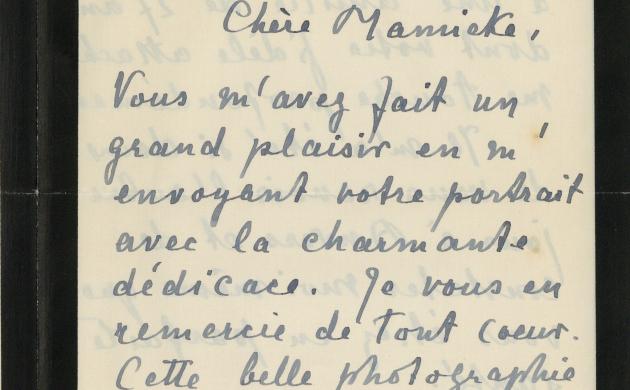 Chère Mamieke,
Vous m'avez fait un
grand plaisir en m'
envoyant votre portrait
avec la charmante
dédicace. Je vous en
remercie de tout coeur.
Cette belle photographie